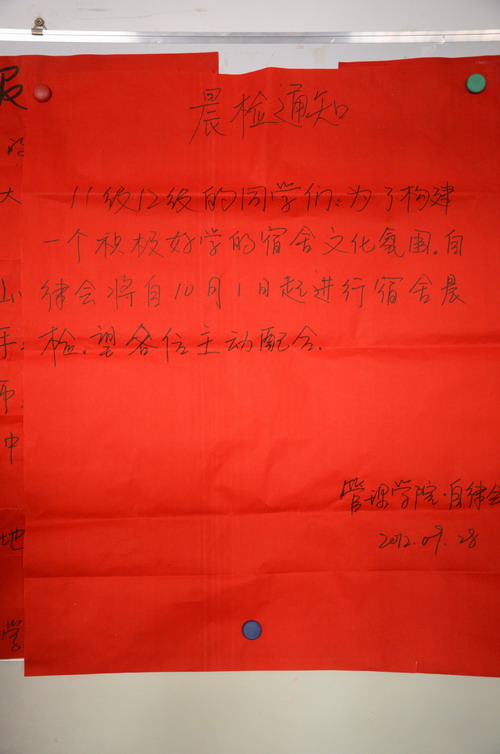 晨检通知
11级12级的同学们:为了构建
一个积极好学的宿舍文化氛围.自
律会将自10月1日起进行宿舍晨
检.望各位主动配合.
管理学院·自律会
2012.09.28
大
山
手
中
地
学